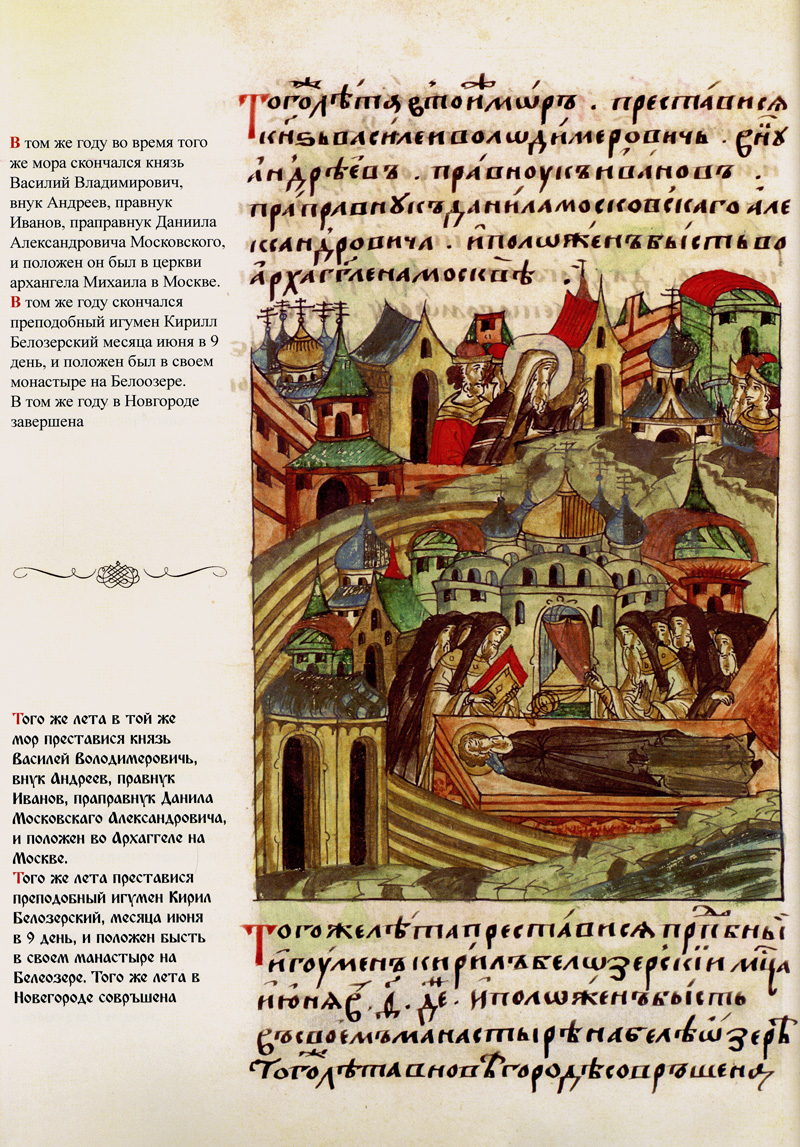 В том же году во время того
же мора скончался князь
Василий Владимирович,
внук Андреев, правнук
Иванов, праправнук Даниила
Александровича Московского,
и положен он был в церкви
архангела Михаила в Москве.
В том же году скончался
преподобный игумен Кирилл
Белозерский месяца июня в 9
день, и положен был в своем
монастыре на Белоозере.
В том же году в Новгороде
завершена
Того же лета в той же
мор преставися князь
Василей Володимеровичь,
внук Андреев, правнук
Иванов, праправнук Данила
Московскаго Александровича,
и положен во Архаггеле на
Москве.
Того же лета преставися
преподобный игумен Кирил
Белозерский, месяца июня
в 9 день, и положен бысть
в своем манастыре на
Белеозере. Того же лета в
Новегороде совръшена
Тогожⷤлѣта втоиⷤмѡръ . преставися
кн҃ѕьвасилеиволѡдимеровичь . внꙋⷦ
андрѣевъ . правноукъивановъ .
праправнꙋкъданиламосковскаго але
ѯандровича . иположенъбысть во
архаггленамосквѣ .
Тогожелѣтапреставися прпⷣбныи
игоуменъкирилъбелѡзерскіи мцⷭа
июня в҃ . д҃е . иположенъбысть
въсвоемъманастырѣнабелѣѡзерѣ
Тогожⷤлѣтавновѣгородѣсовръшена